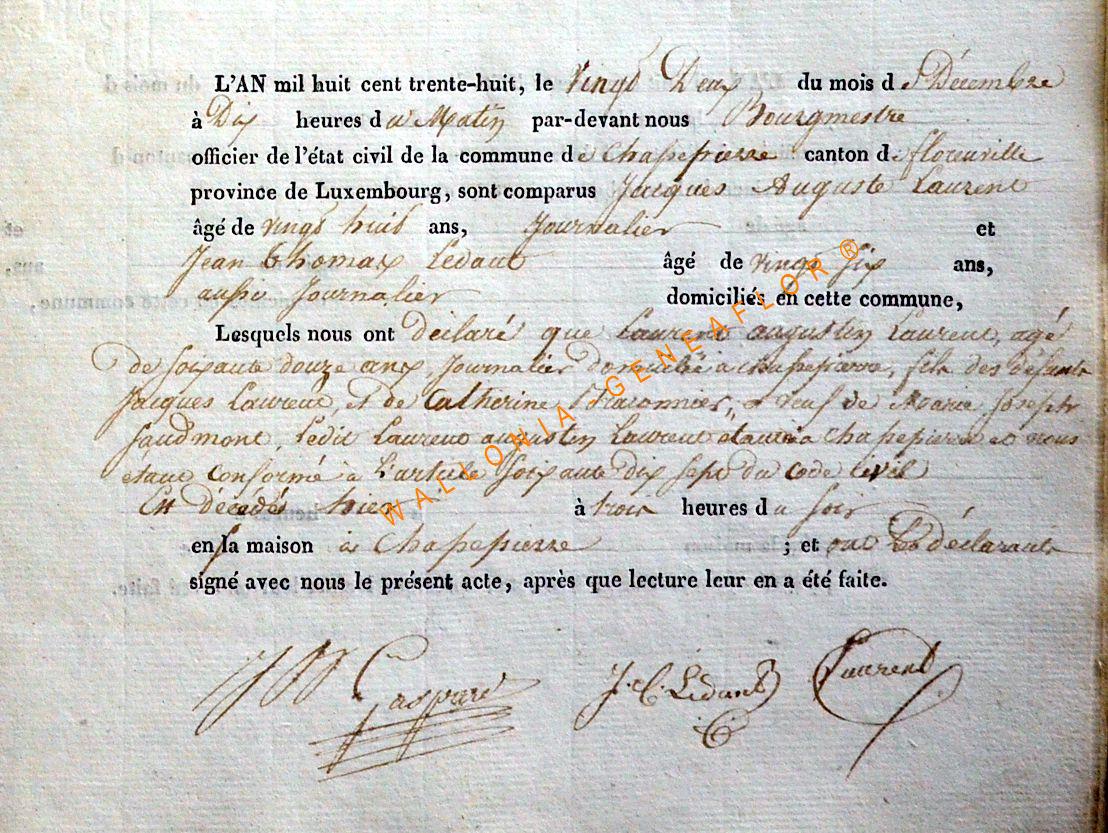 L'AN mil huit cent trente-huit, le Vingt Deux du mois de Décembre
à Dix heures du Matin par-devant nous Bourgmestre
officier de l'état civil de la commune de Chapepierre canton de florenville
province de Luxembourg, sont comparus Jacques Auguste Laurent
âgé de vingt huit ans, Journalier et
Jean thomas Ledant âgé de vingt six ans,
aussi Journalier domiciliés en cette commune,
Lesquels nous ont déclaré que Laurent augustin Laurent, agé
de soixante douze ans, Journalier domicilié à chapepierre, fils des défunts
Jacques Laurent, et de Catherine et veuf de Marie Joseph
Laudmont, Ledit Laurent augustin Laurent à chapepierre et nous
etant conformé à L'article soixante dix sept du code civil
Est décédé hier à trois heures du soir
en sa maison à Chapepierre ; et ont Les déclarants
signé avec nous le présent acte, après que lecture leur en a été faite.
Gasparé J.C. Ledant Laurent
WALLONIA - GENEAFLOR ®